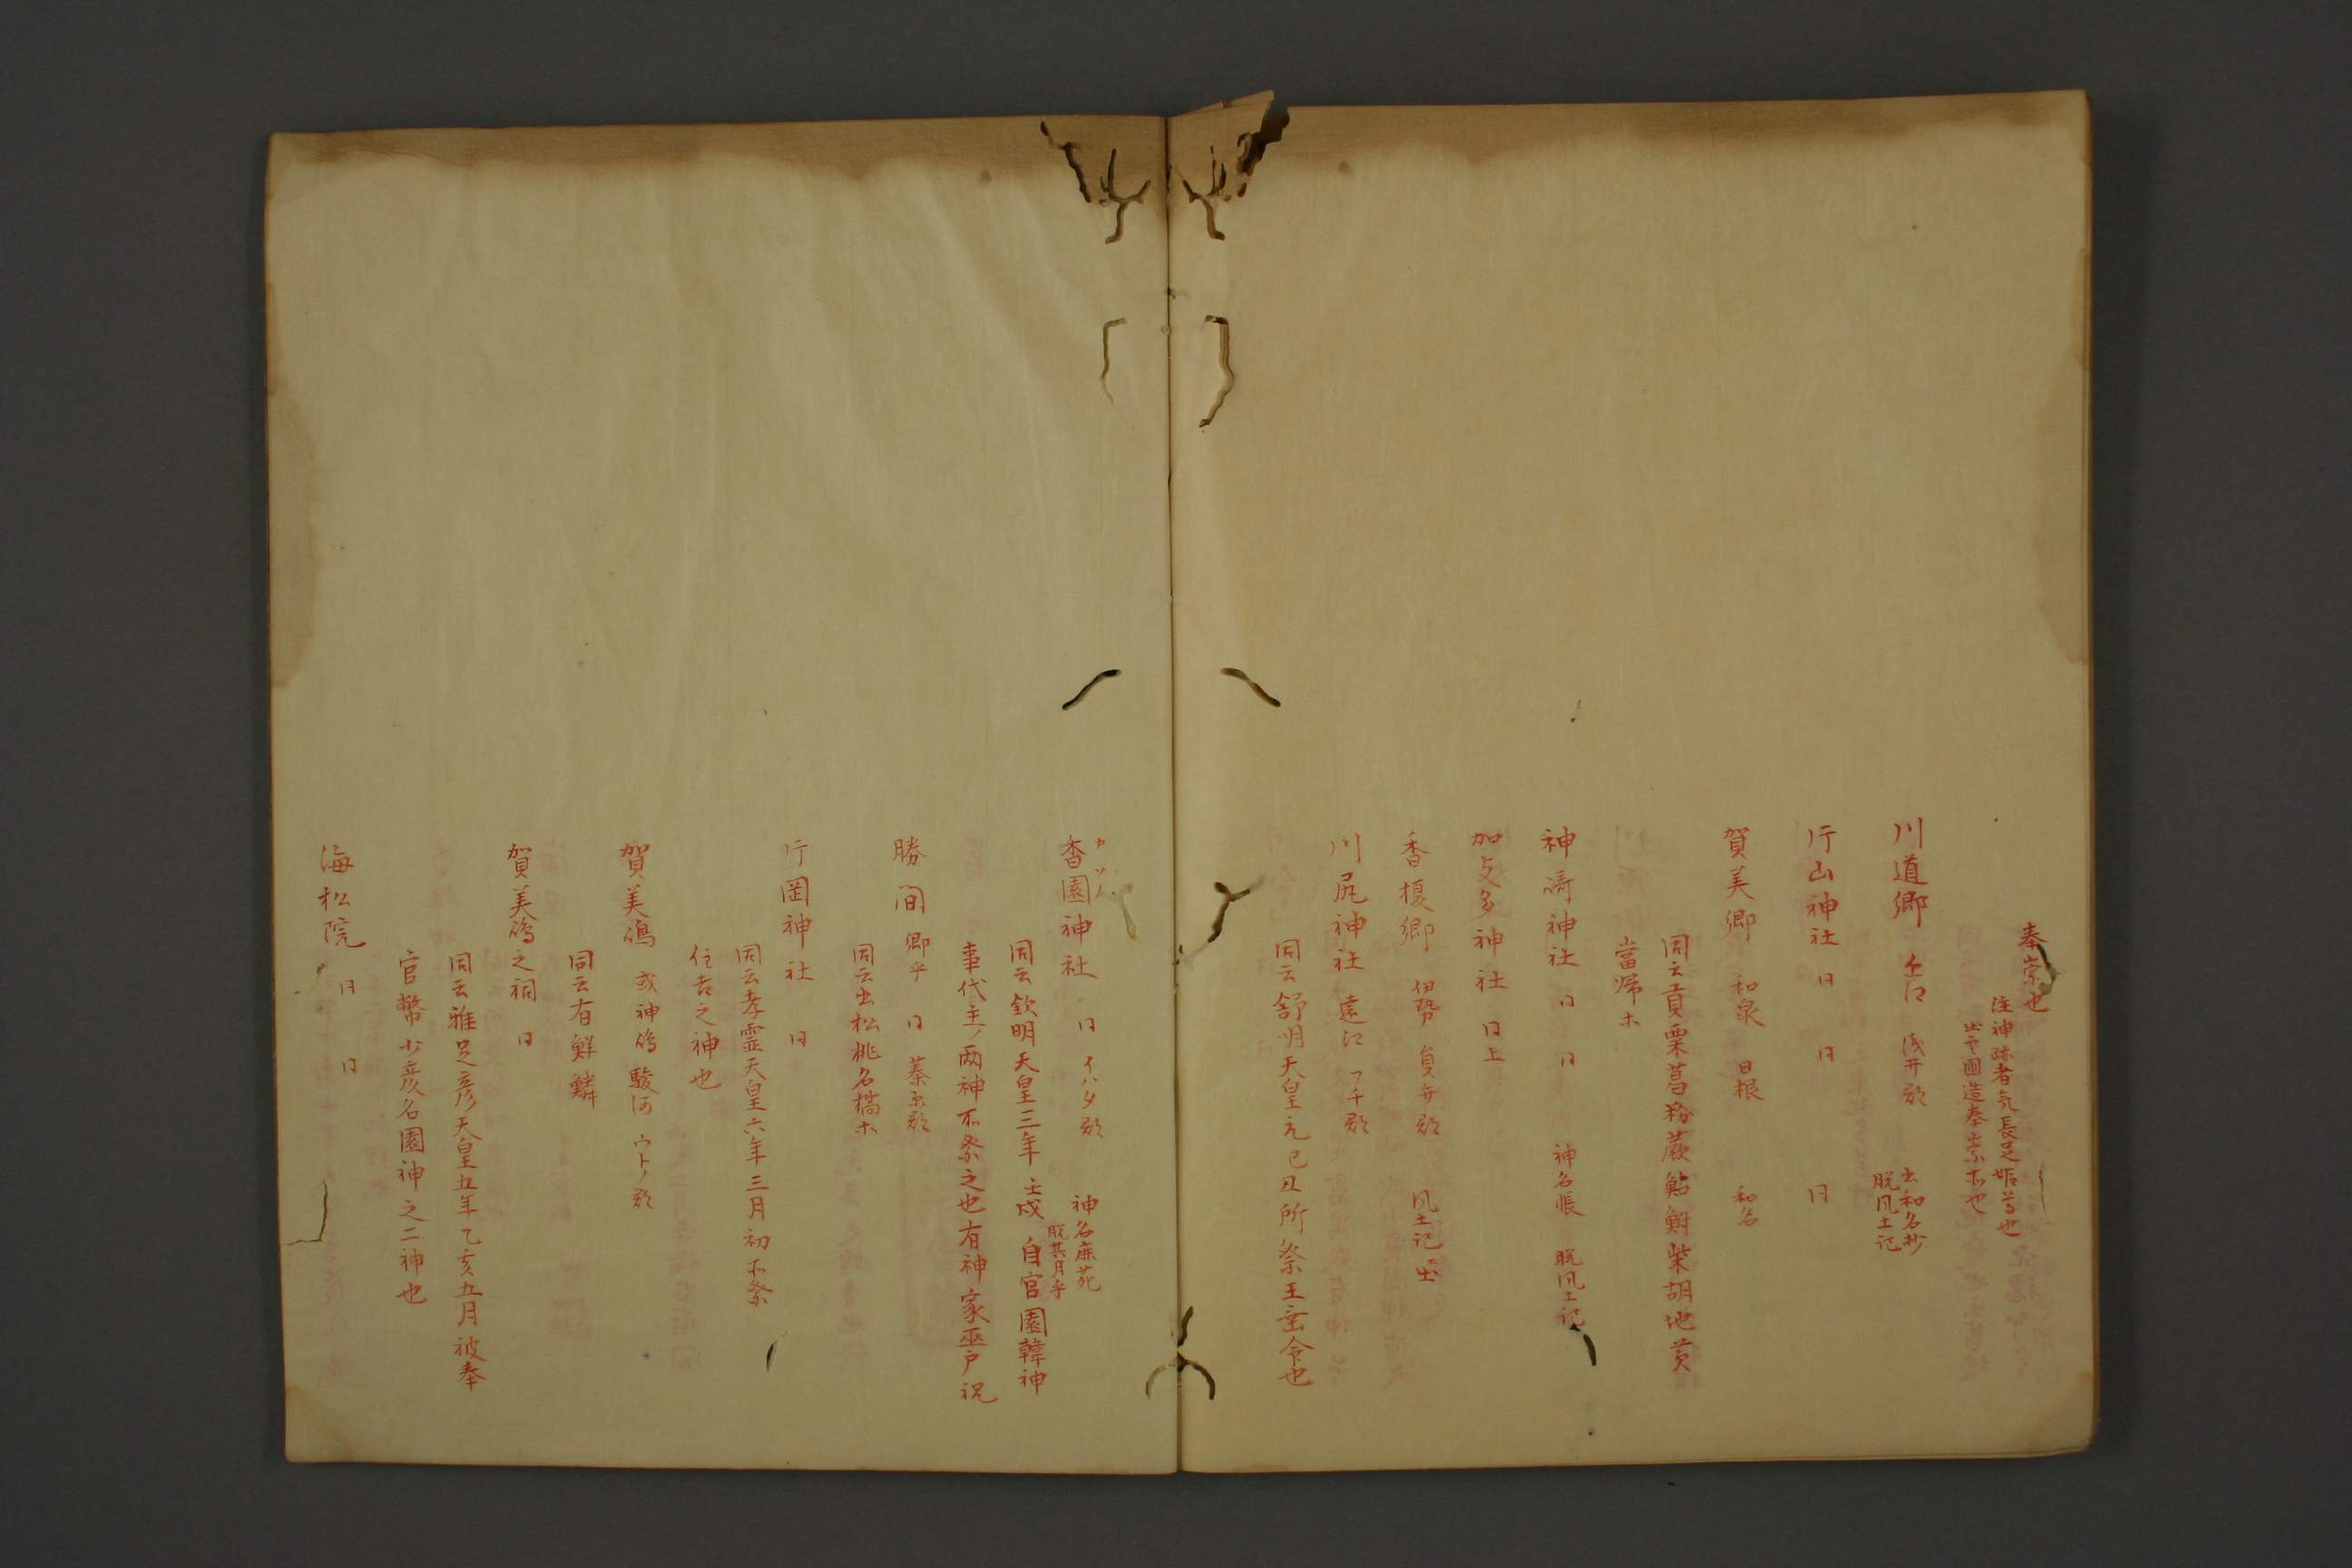 奉崇也
住神跡者気長足姫尊也
出雲國造奉崇ホ也
川道郷 近江 浅井郡 出和名抄
脱風土記
片山神社 日 日 日
賀美郷 和泉 日根 和名
同云貢栗葛粉蕨鮎鮒柴胡地黄
當帰ホ
神濤神社 日 日 神名帳 脱風土記
加支多神社 日上
香榎郷 伊勢 員弁郡 風土記出
川尻神社 遠江 フチ郡
同云舒明天皇元己丑所祭玉垂命也
香園神社 日 イハタ郡 神名鹿苑
カツノ
脱其月乎
同云欽明天皇三年壬戌自官園韓神
事代主ノ両神不祭之也有神家巫戸祝
勝間郷乎 日 蓁原郡
同云出松桃名橘ホ
片岡神社 日
同云孝霊天皇六年三月初不祭
住吉之神也
賀美嶋 或神嶋 駿河 ウトノ郡
同云有鮮鱗
賀美嶋之祠 日
同云雅足彦天皇五年乙亥五月被奉
官幣少彦名園神之二神也
海松院 日 日